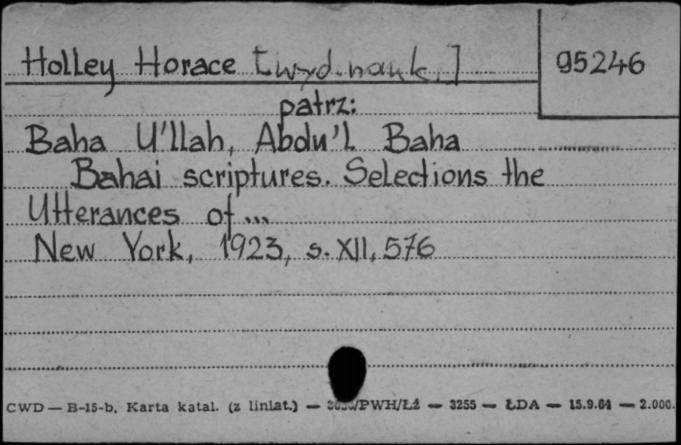 Holley Horace [wyd. nauk.] 95246
patrz:
Baha U'llah, Abdu'l Baha
Bahai scriptures. Selections the
Utterances of ...
New York, 1923, s. XII, 576
CWD — B-15-b, Karta katal. (z liniat.) — /PWH/ŁŻ — 3255 — ŁDA — 15.9.61 — 2.000.